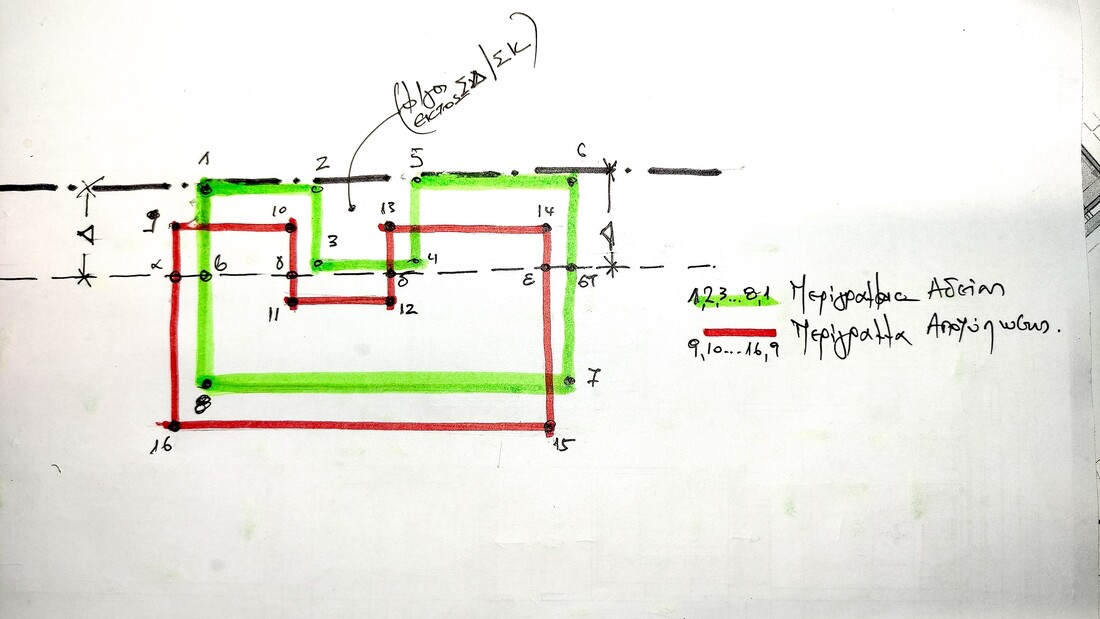 (Φ/γος
εκτος ΣΔ/ΣΚ)
1 2 5 6
9 10 13 14
Δ Δ
3 4
α β γ δ ε στ
11 12
8 7
16 15
1,2,3...8,1 Περίγραμμα Αδείας
9,10...16,9 Περίγραμμα Αποτύπωσης.